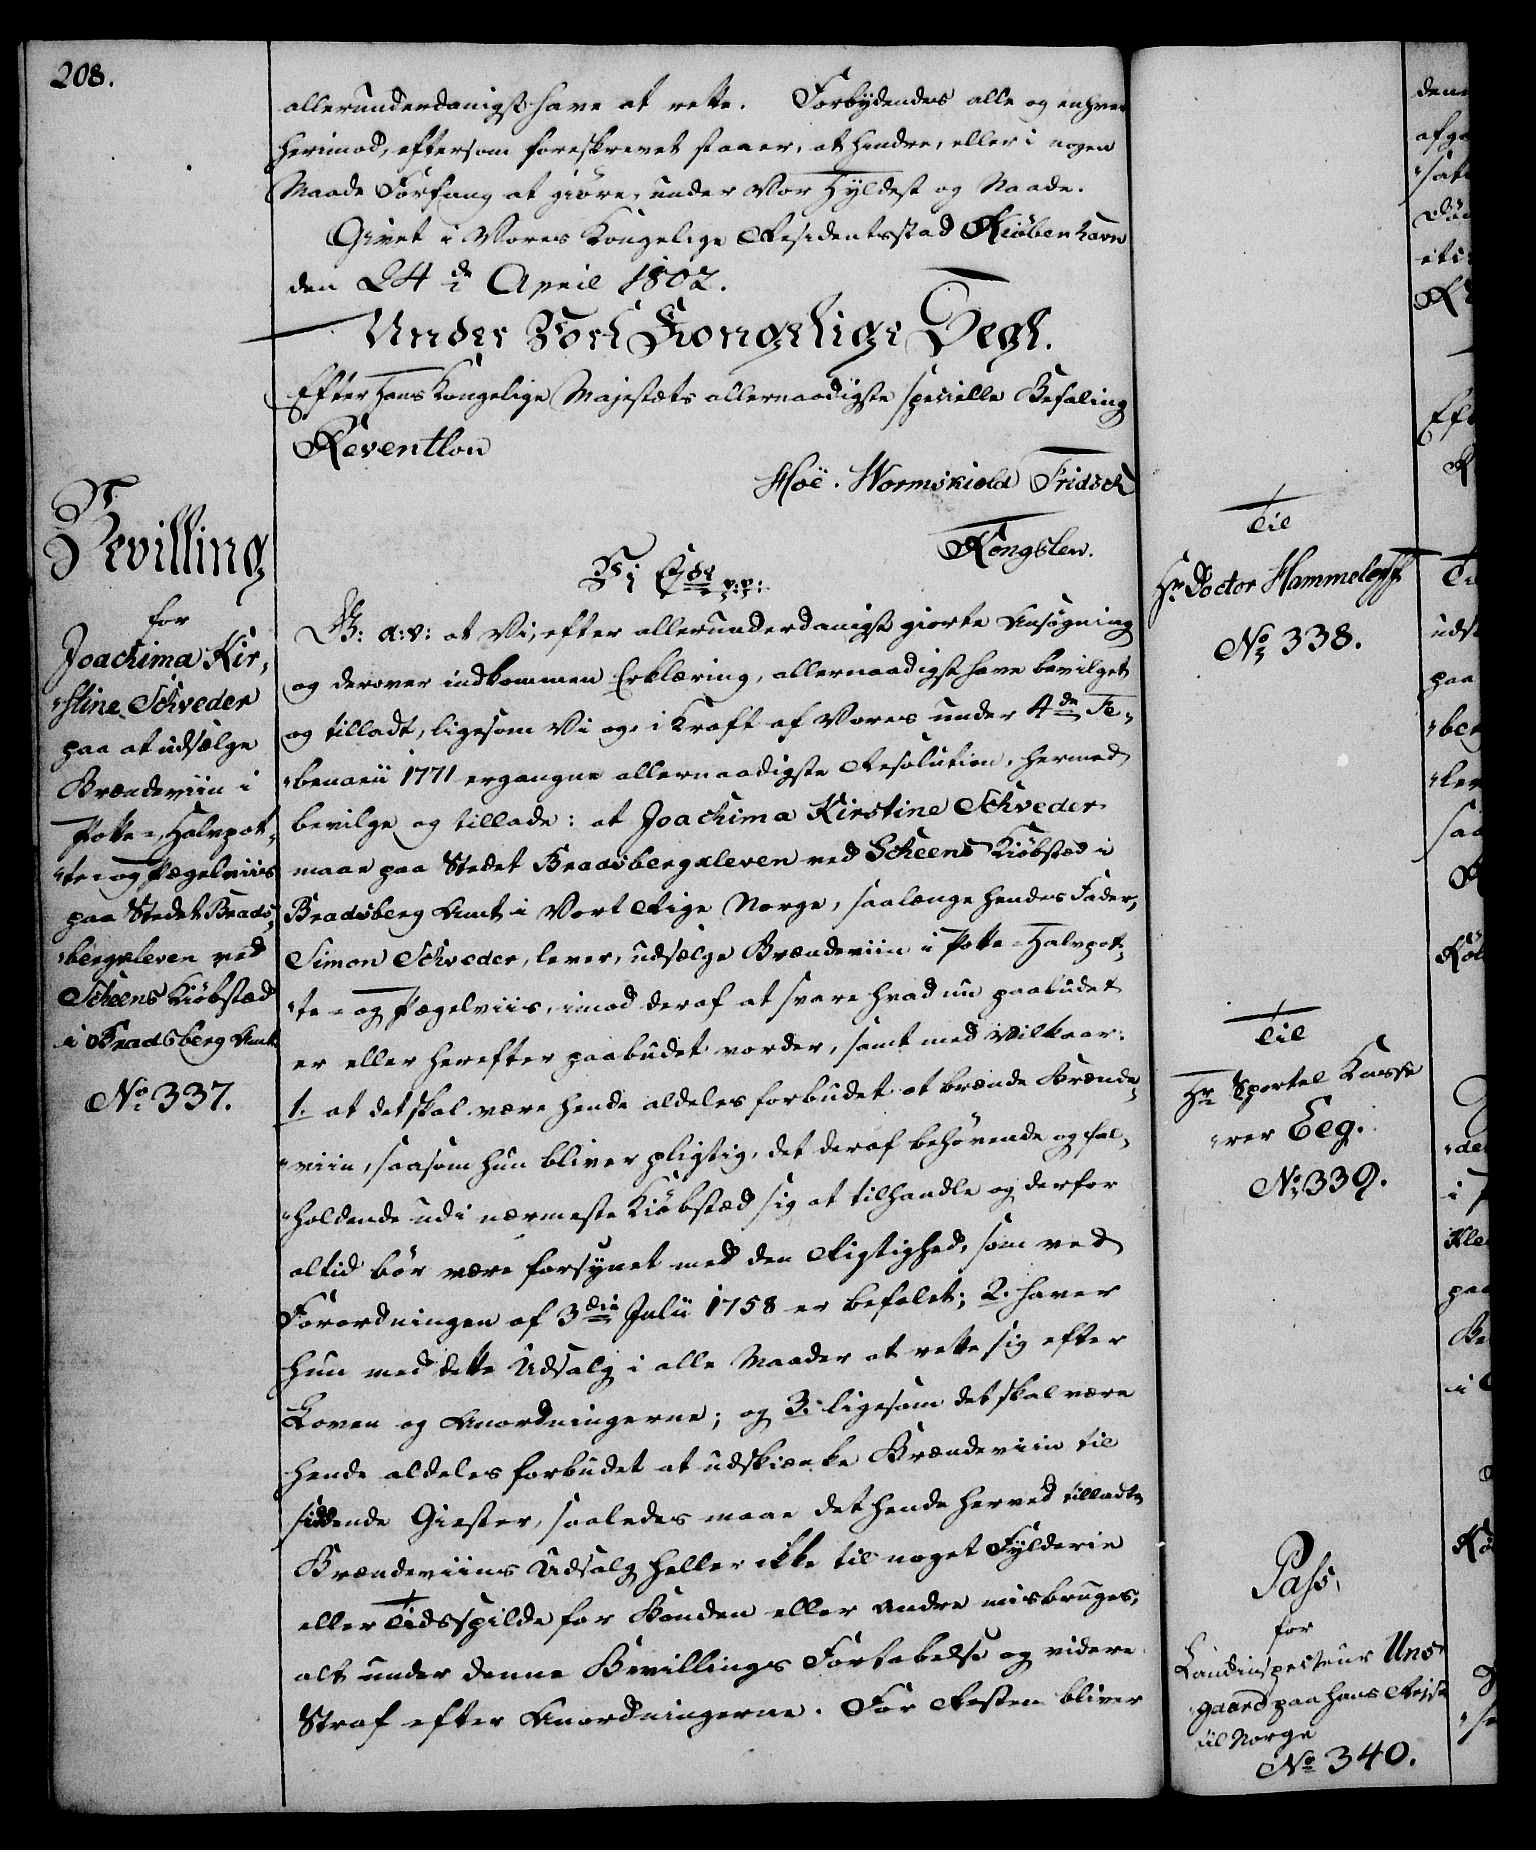 208.
allerunderdanigst have at rette. Forbydendes alle og enhver
herimod, eftersom foreskrevet staaer, at hindre, eller i nogen
Maade Forfang at giöre, under Vor Hyldest og Naade.
Givet i Vores Kongelige Residentzstad Kiöbenhavn
den 24de April 1802.
Under Vort Kongelige Segl.
Efter Hans Kongelige Majestæts allernaadigste specielle Befaling
Reventlou
Hoë. Wormskiold Fridsch
Kongslew.
Bevilling
for
Joachima Kir„
„stine Schveder
paa at udsælge
Brændeviin i
Potte- Halvpot„
„te- og Pægelviis
paa Stedet Brads„
„bergkleven ved
Scheens Kiöbstæd
i Bradsberg Amt.
No. 337.
Vi C 7de p:p:
G: a: v: at Vi, efter allerunderdanigst giorte Ansøgning
og derover indkommen Erklæring, allernaadigst have bevilget
og tilladt, ligesom Vi og i Kraft af Vores under 4de Fe„
„bruarii 1771 ergangne allernaadigste Resolution, hermed
bevilge og tillade: at Joachima Kirstine Schveder
maae paa Stedet Bradsbergkleven ved Scheens Kiöbstæd i
Bradsberg Amt i Vort Rige Norge, saalænge hendes Fader,
Simon Schveder, lever, udsælge Brændeviin i Potte- Halvpot„
„te- og Pægelviis, imod deraf at svare hvad nu paabudet
er eller herefter paabudet vorder, samt med Vilkaar:
1. at det skal være hende aldeles forbudet at brænde Brænde„
„viin, saasom hun bliver pligtig, det deraf behövende og fal„
„holdende udi nærmeste Kiöbstæd sig at tilhandle og derfor
altid bör være forsynet med den Rigtighed, som ved
Forordningen af 3die Julii 1758 er befalet; 2. haver
hun med dette Udsalg i alle Maader at rette sig efter
Loven og Anordningerne; og 3. ligesom det skal være
hende aldeles forbudet at udskiænke Brændeviin til
siddende Giester, saaledes maae det hende herved tilladte
Brændeviins Udsalg heller ikke til noget Fylderie
eller Tidsspilde for Bonden eller andre misbruges,
alt under denne Bevillings Fortabelse og videre
Straf efter Anordningerne. For Resten bliver
Til
Hr. Doctor Hammeleff
No. 338.
Til
Hr. Sportel Kasse„
„rer Eeg.
No. 339.
Pass
for
Landinspecteur Uns„
„gaard paa hans Rejse
til Norge
No. 340.